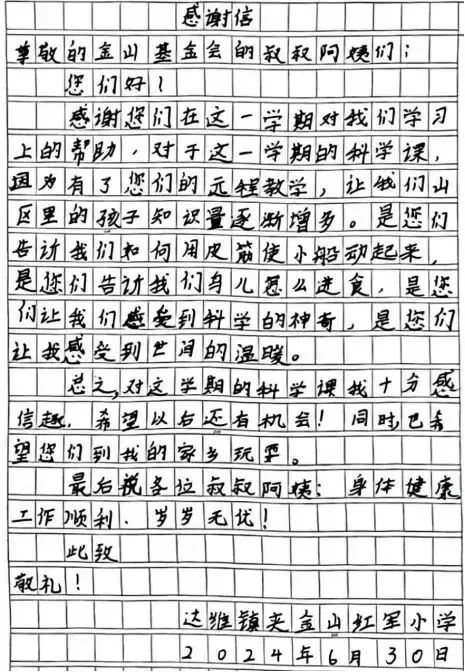 感谢信
尊敬的金山基金会的叔叔阿姨们：
您们好！
感谢您们在这一学期对我们学习
上的帮助，对于这一学期的科学课，
因为有了您们的远程教学，让我们山
区里的孩子知识量逐渐增多。是您们
告诉我们如何用皮筋使小船动起来，
是您们告诉我们鸟儿怎么进食，是您
们让我们感受到科学的神奇，是您们
让我感受到世间的温暖。
总之，对这学期的科学课我十分感
信趣，希望以后还有机会！同时，也希
望您们到我的家乡玩耍。
最后祝各位叔叔阿姨：身体健康
工作顺利、岁岁无忧！
此致
敬礼！
达维镇夹金山红军小学
2024年6月30日